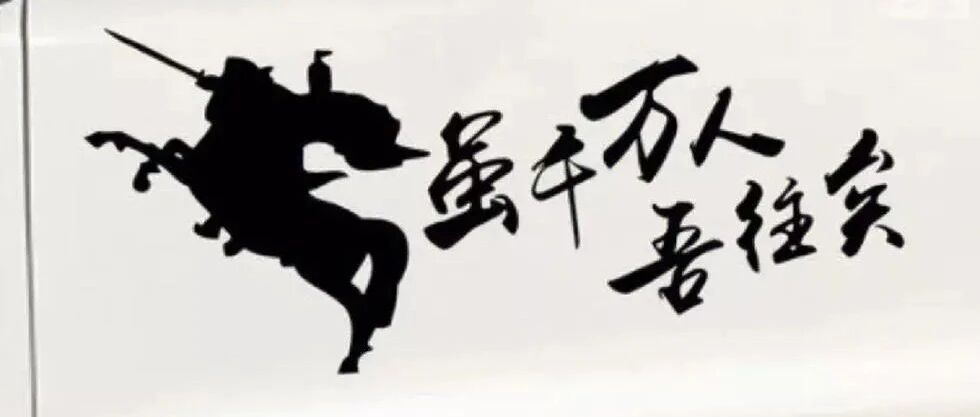 虽千万人
吾往矣